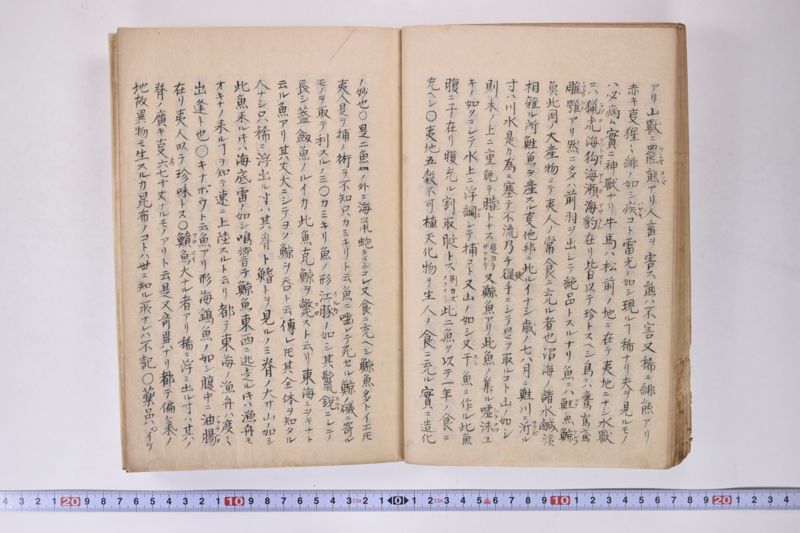 アリ山獸ニ羆熊アリ人畜ヲ害ス熊ハ不害又稀ニ緋熊アリ
赤キ夏猩々緋ノ如シ疾コト雷光ノ如シ現ルヿ稀ナリ夫ヲ見ルモノ
必病ム實ニ神獸ナリ牛馬ハ松前ノ地ニ在テ夷地ニナシ水獸
ニハ猟虎海狗海瀬海豹在リ皆以テ珍トスヘシ鳥ハ鷲鳶鴦
雕鶚アリ然ニタヽ箭羽ヲ出シテ絶品トスルナリ魚ニハ鮭魚鯨
魚此両ハ大産物ニテ夷人ノ常食ニ充ル者也沼海ノ諸水鹹淡
相雑ル所鮭魚ヲ産スル夷他邦ニ此ルイナシ歳ノ七八月ニ鮭川ニ泝ル
寸ハ川水是カ為ニ塞テ不流乃チ徒手ニシテ只是ヲ取ルコト山ノ如シ
則木ノ上ニ重乾テ腊トナス又鯡魚アリ此魚ノ集ル嘘沫ユ
キノ如クニシテ水上ニ浮網シテ捕コト又山ノ如シ又干魚ニ作ル此魚
腹ニ子在リ腹充ル割取脡トス此二魚ヲ以テ一年ノ食ニ
充ヘシ〇夷地五穀不可植天化物ヲ生人ノ食ニ充ル實ニ造化
ノ妙也〇是二魚ノ外ニ海鼡蛇タシフレ又食ニ充ヘシ鯨魚多ト虽モ
夷人是ヲ捕ノ術ヲ不知只カミキリト云魚ニ噬レテ死セル鯨ノ磯ニ寄ル
モノヲ取テ利スルノミ〇カミキリ魚ノ形江豚ノ如シ其鬣鋭ニシテ
長シ蓋劔魚ノルイカ此魚克鯨ヲ斃スト云リ東海ニヲキナト
云ル魚アリ其丈大ニシテヨク鯨ヲ呑ト云傳レ𪜈其全体ヲ知タル
人ナシ只稀ニ浮出ル寸ハ其脊ト鰭トリ見ルノミ脊ノ大サ山ノ如シ
此魚来ル𪜈ハ海底雷ノ如シ鳴響テ鯨魚東西ニ迯去ル𪜈ハ漁舟モ
オキナノ来ルヿヲ知テ速ニ上陸スルト云リ都テ東海ノ漁舟ハ度々
出逢ト也〇キナボウト云魚アリ形海鷂魚ノ如シ腹中ニ油腸
在リ夷人以テ珍味トス〇鱝魚大ナル者アリ稀ニ浮ミ出ル寸ハ其ノ
脊ノ廣キ夏六七十丈ノモノアリト云是又奇異ナリ都テ偏氣ノ
地故異物モ生スルカ昆布ノコトハ世ニ知ル所ナレハ不記〇薬品ハイケ